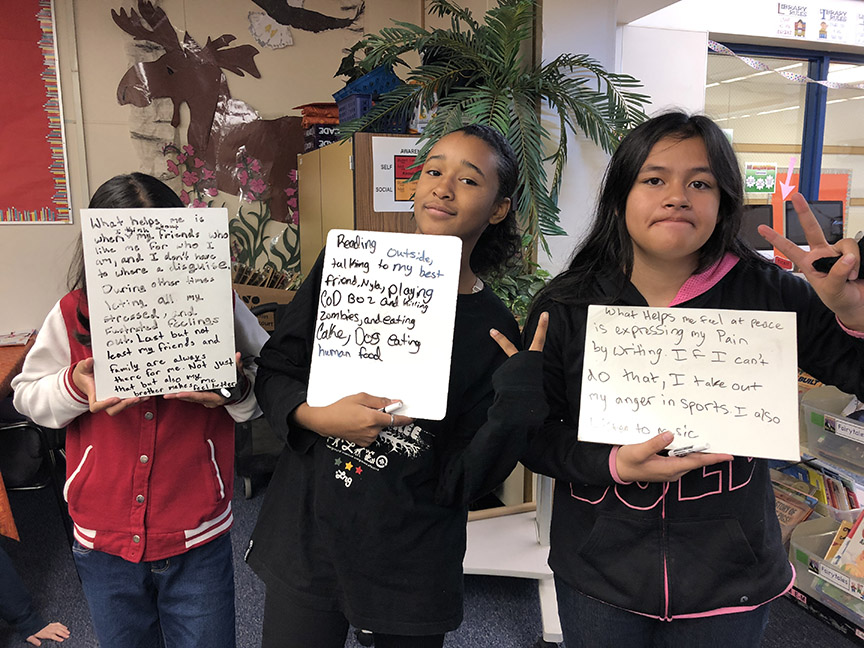 What helps me is
when I hang around
my friends who
like me for who I
am, and I don't have
to where a disguise.
During other times
letting all my
stressed, and
frustrated feelings
out. Last but not
least my friends and
family are always
there for me. Not just
that but also my
brother makes me feel better
Reading outside,
talking to my best
friend, Nyla, playing
COD BO2 and killing
zombies, and eating
Cake, Dog eating
human food
What Helps me feel at peace
is expressing my Pain
by writing. If I can't
do that, I take out
my anger in sports. I also
Listen to music
AWARE
SELF
SOCIAL
LIBRARY
RULES
LIBRARY
RULES
Fairytales
Fairytales
Fairytales